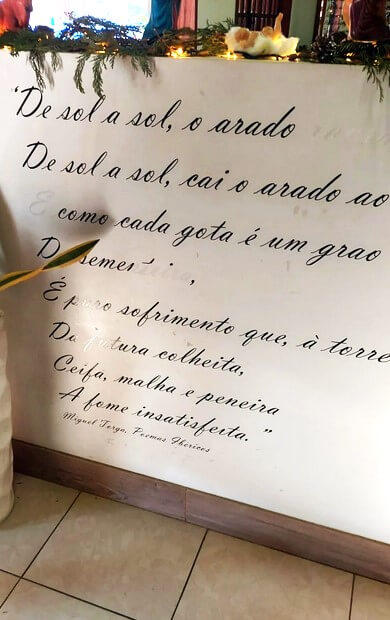 "De sol a sol, o arado
De sol a sol, cai o arado ao
E como cada gota é um grao
semen
É puro sofrimento que, à torre
Da futura colheita,
Ceifa, malha e peneira
A fome insatisfeita. "
Miguel Torga, Poemas Ibéricos